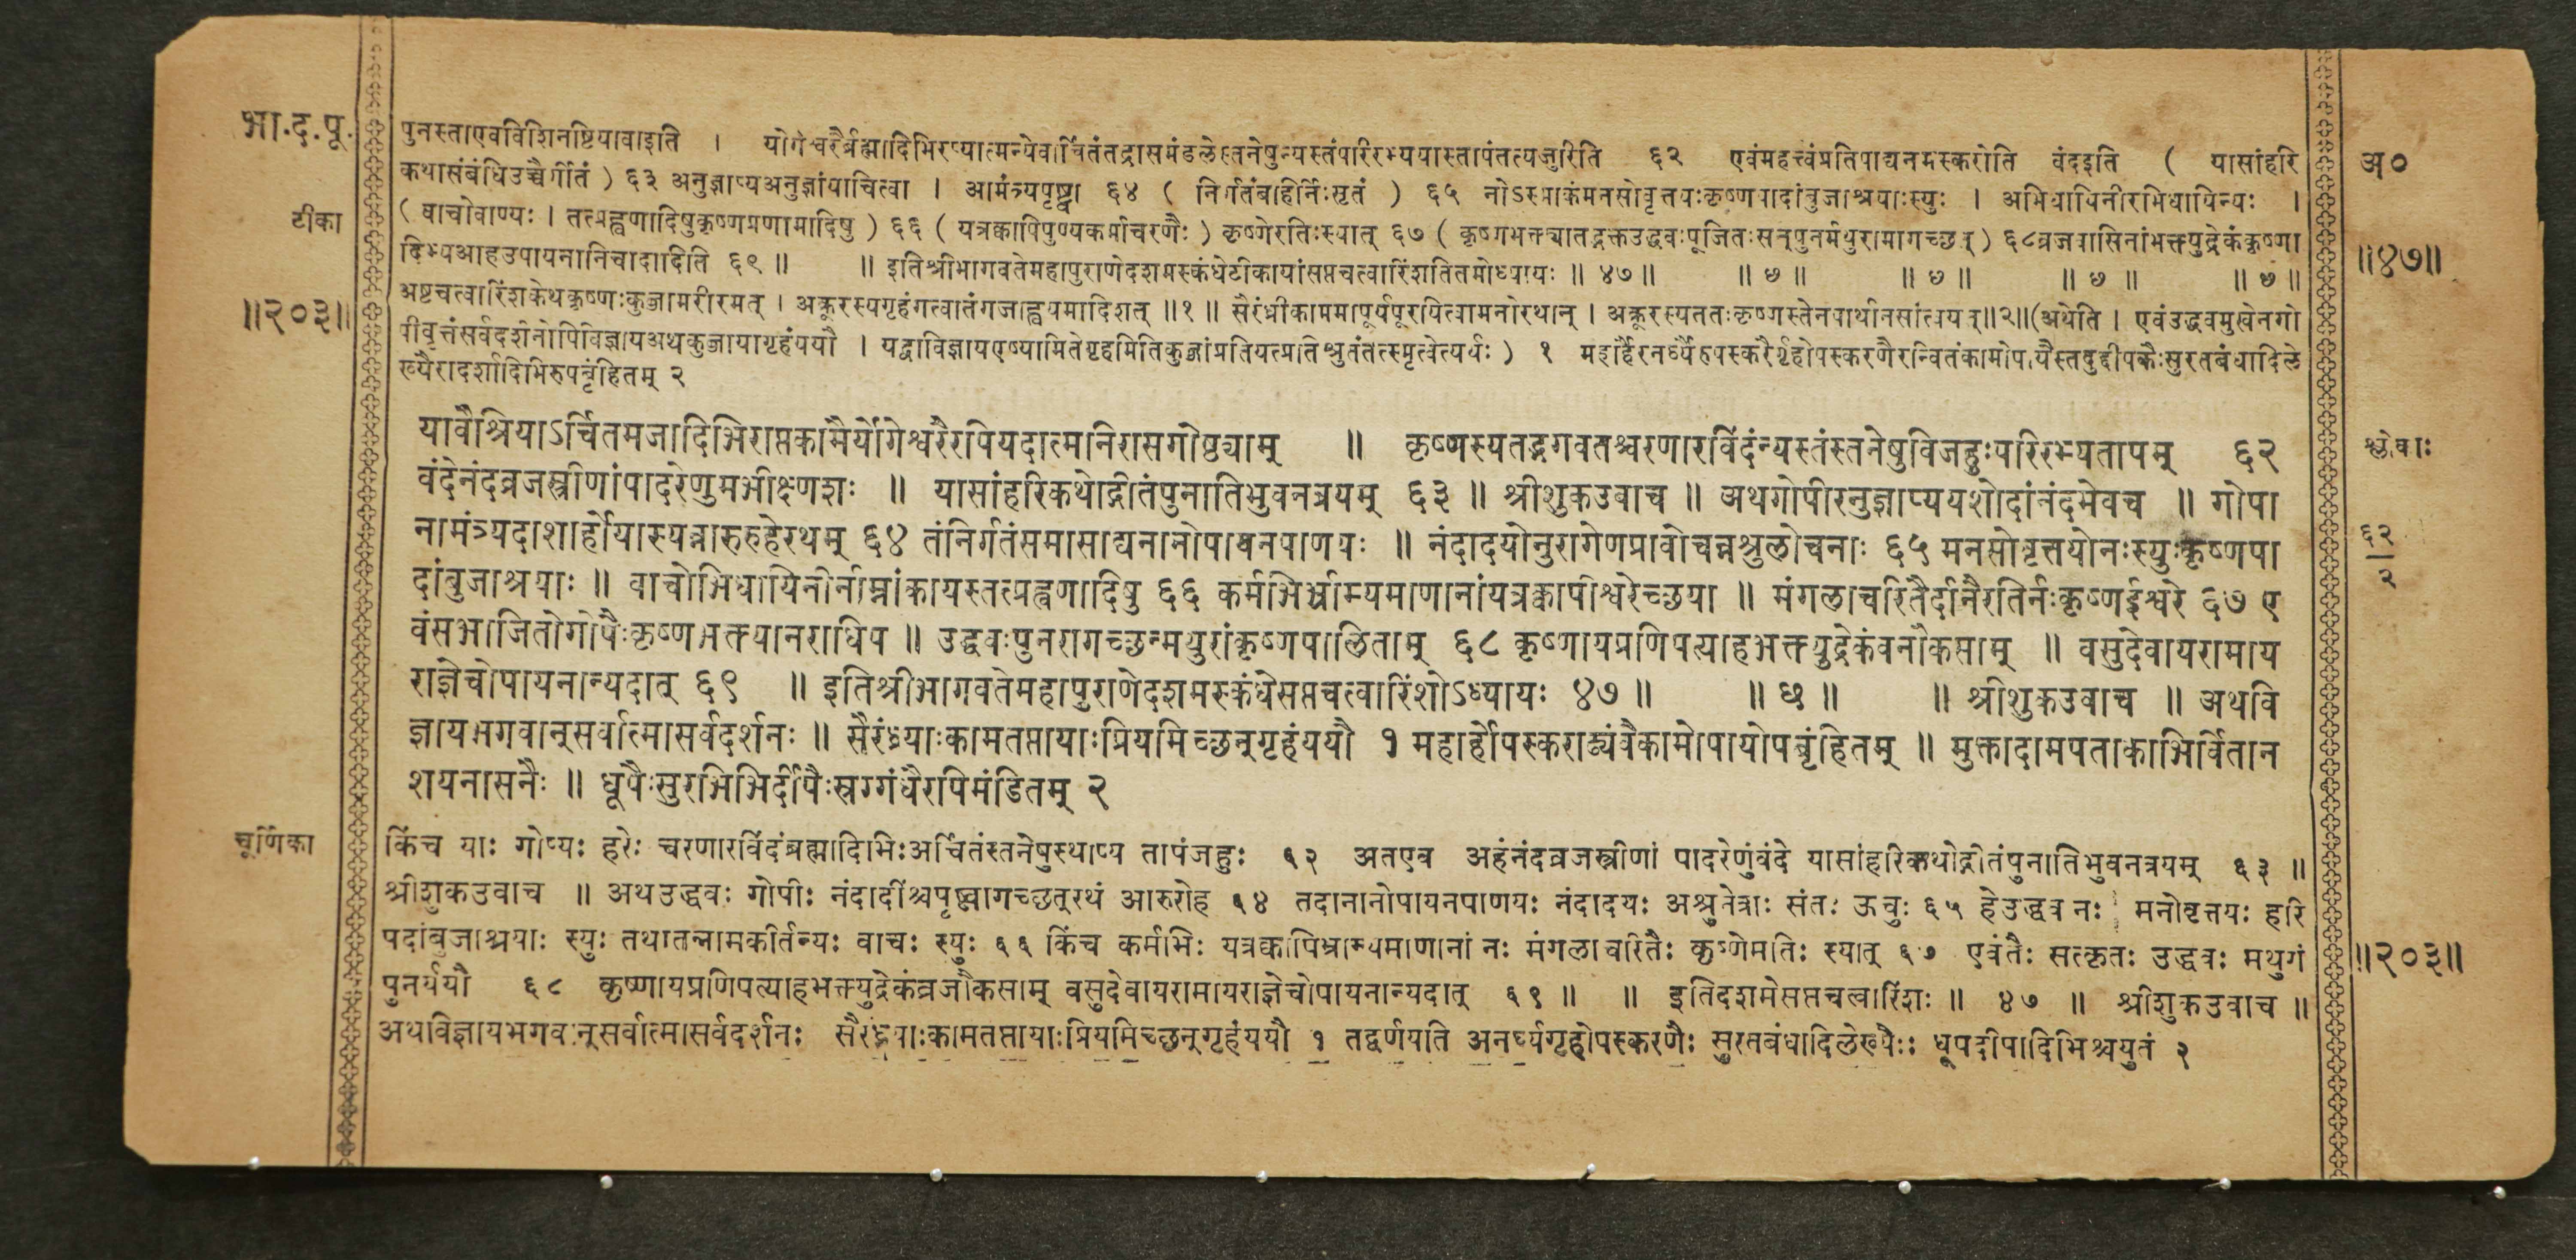 भा.द.पू.
टीका
॥२०३॥
पुनस्ताएवविशिनष्टियावाइति । योगेश्वरैर्ब्रह्मादिभिरप्यात्मन्येवार्चितंतद्रासमंडलेस्तनेषुन्यस्तंपरिरभ्ययास्तापंतत्यजुरिति ६२ एवंमहत्त्वंप्रतिपाद्यनमस्करोति वंदइति ( यासांहरि
कथासंबंधिउच्चैर्गीतं ) ६३ अनुज्ञाप्यअनुज्ञांयाचित्वा । आमंत्र्यपृष्ट्वा ६४ ( निर्गतंबहिर्निःसृतं ) ६५ नोऽस्माकंमनसोवृत्तयःकृष्णपादांबुजाश्रयाःस्युः । अभिधायिनीरभिधायिन्यः ।
( वाचोवाण्यः । तत्प्रह्वणादिषुकृष्णप्रणामादिषु ) ६६ ( यत्रक्वापिपुण्यकर्माचरणैः ) कृष्णेरतिःस्यात् ६७ ( कृष्णभक्त्यातद्भक्तउद्धवःपूजितःसन्पुनर्मथुरामागच्छत् ) ६८व्रजवासिनांभक्त्युद्रेकंकृष्णा
दिभ्यआहउपायनानिचादादिति ६९ ॥ ॥ इतिश्रीभागवतेमहापुराणेदशमस्कंधेटीकायांसप्तचत्वारिंशतितमोध्यायः ॥ ४७ ॥ ॥ ७ ॥ ॥ ७ ॥ ॥ ७ ॥ ॥ ७ ॥
अष्टचत्वारिंशकेथकृष्णःकुब्जामरीरमत् । अक्रूरस्यगृहंगत्वातंगजाह्वयमादिशत् ॥१ ॥ सैरंध्रीकाममापूर्यपूरयित्वामनोरथान् । अक्रूरस्यततःकृष्णस्तेनपार्थानसांत्वयत्॥२॥(अथेति । एवंउद्धवमुखेनगो
पीवृत्तंसर्वदर्शनोपिविज्ञायअथकुब्जायागृहंययौ । यद्वाविज्ञायएष्यामितेगृहमितिकुब्जांप्रतियत्प्रतिश्रुतंतत्स्मृत्वेत्यर्थः ) १ महार्हैरनर्घ्यैरुपस्करैर्गृहोपस्करणैरन्वितंकामोपायैस्तदुद्दीपकैःसुरतबंधादिले
ख्यैरादर्शादिभिरुपबृंहितम् २
यावैश्रियाऽर्चितमजादिभिराप्तकामैर्योगेश्वरैरपियदात्मनिरासगोष्ठ्याम् ॥ कृष्णस्यतद्भगवतश्चरणारविंदंन्यस्तंस्तनेषुविजहुःपरिरभ्यतापम् ६२
वंदेनंदव्रजस्त्रीणांपादरेणुमभीक्ष्णशः ॥ यासांहरिकथोद्गीतंपुनातिभुवनत्रयम् ६३ ॥ श्रीशुकउवाच ॥ अथगोपीरनुज्ञाप्ययशोदांनंदमेवच ॥ गोपा
नामंत्र्यदाशार्होयास्यन्नारुरुहेरथम् ६४ तंनिर्गतंसमासाद्यनानोपायनपाणयः ॥ नंदादयोनुरागेणप्रावोचन्नश्रुलोचनाः ६५ मनसोवृत्तयोनःस्युःकृष्णपा
दांबुजाश्रयाः ॥ वाचोभिधायिनीर्नाम्नांकायस्तत्प्रह्वणादिषु ६६ कर्मभिर्भ्राम्यमाणानांयत्रक्वापीश्वरेच्छया ॥ मंगलाचरितैर्दानैरतिर्नःकृष्णईश्वरे ६७ ए
वंसभाजितोगोपैःकृष्णभक्त्यानराधिप ॥ उद्धवःपुनरागच्छन्मथुरांकृष्णपालिताम् ६८ कृष्णायप्रणिपत्याहभक्त्युद्रेकंवनौकसाम् ॥ वसुदेवायरामाय
राज्ञेचोपायनान्यदात् ६९ ॥ इतिश्रीभागवतेमहापुराणेदशमस्कंधेसप्तचत्वारिंशोऽध्यायः ४७ ॥ ॥ ७ ॥ ॥ श्रीशुकउवाच ॥ अथवि
ज्ञायभगवान्सर्वात्मासर्वदर्शनः ॥ सैरंध्र्याःकामतप्तायाःप्रियमिच्छन्गृहंययौ १ महार्होपस्कराढ्यंवैकामोपायोपबृंहितम् ॥ मुक्तादामपताकाभिर्वितान
शयनासनैः ॥ धूपैःसुरभिभिर्दीपैःस्रग्गंधैरपिमंडितम् २
चूर्णिका
किंच याः गोप्यः हरेः चरणारविंदंब्रह्मादिभिःअर्चितंस्तनेषुस्थाप्य तापंजहुः ६२ अतएव अहंनंदव्रजस्त्रीणां पादरेणुंवंदे यासांहरिकथोद्गीतंपुनातिभुवनत्रयम् ६३ ॥
श्रीशुकउवाच ॥ अथउद्धवः गोपीः नंदादींश्चपृष्ट्वागच्छन्रथं आरुरोह ६४ तदानानोपायनपाणयः नंदादयः अश्रुनेत्राः संतः ऊचुः ६५ हेउद्धव नः मनोवृत्तयः हरि
पदांबुजाश्रयाः स्युः तथातन्नामकीर्तन्यः वाचः स्युः ६६ किंच कर्मभिः यत्रक्वापिभ्राम्यमाणानां नः मंगलाचरितैः कृष्णेमतिः स्यात् ६७ एवंतैः सत्कृतः उद्धवः मथुरां
पुनर्ययौ ६८ कृष्णायप्रणिपत्याहभक्त्युद्रेकंव्रजौकसाम् वसुदेवायरामायराज्ञेचोपायनान्यदात् ६९ ॥ ॥ इतिदशमेसप्तचत्वारिंशः ॥ ४७ ॥ श्रीशुकउवाच ॥
अथविज्ञायभगवान्सर्वात्मासर्वदर्शनः सैरंध्र्याःकामतप्तायाःप्रियमिच्छन्गृहंययौ १ तद्वर्णयति अनर्घ्यगृहोपस्करणैः सुरतबंधादिलेख्यैः धूपदीपादिभिश्चयुतं २
अ०
॥४७॥
श्लोकाः
६२
२
॥२०३॥